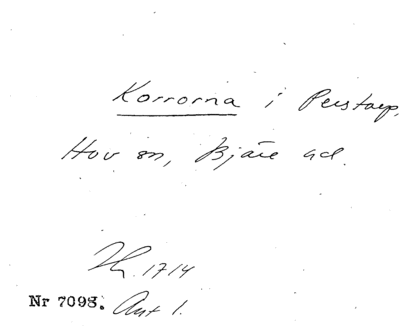 Korrorna i Perstorp,
Hov sn, Bjäre hd.
1714
Nr 7098. Ant 1.